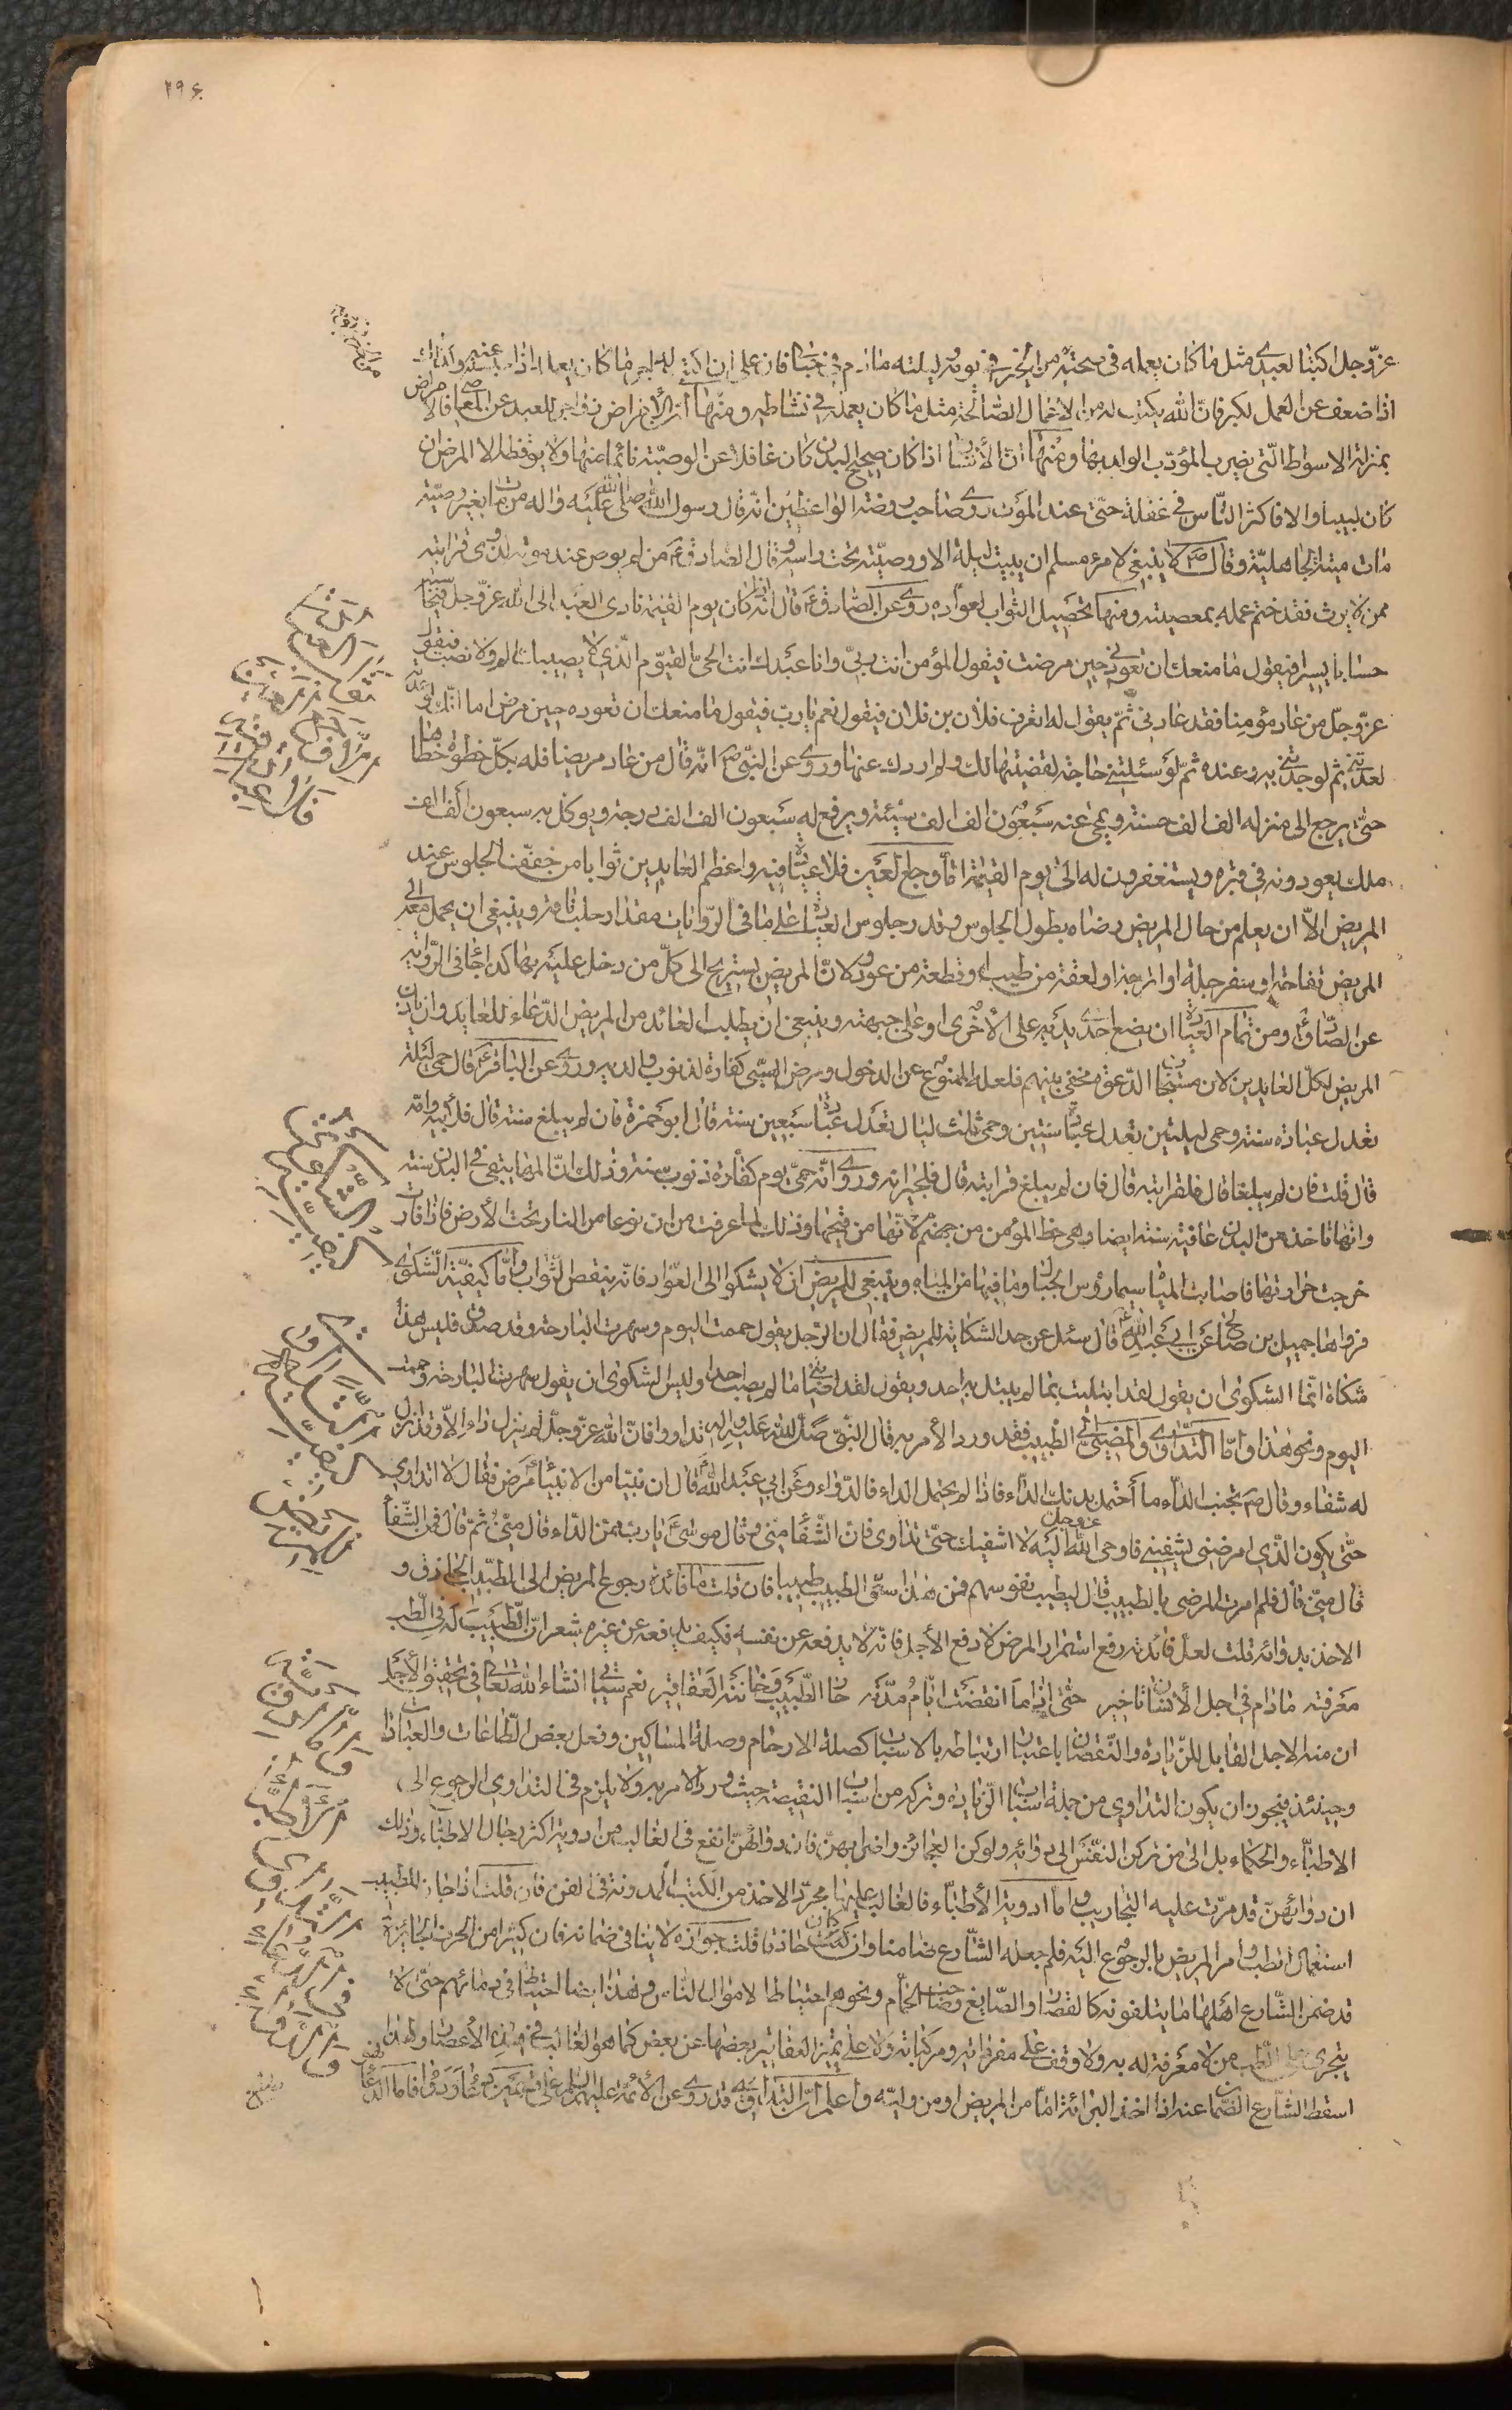 ٢٩٤
عزّ وجل اكتبا لعبدي مثل ما كان يعمله في صحته من الخير في يومه وليلته ما دام في حبسا فان على ان اكتب له اجر ما كان يعمله اذا
اذا ضعف عن العمل لكبر فان الله يكتب له من الاعمال الصّالحة مثل ما كان يعمله في نشاطه ومنها ان الأمراض زواجر للعبد عن المعاصي فالامراض
بمنزلة الاسواط الّتي يضرب المؤدّب الوالد بها ومنها ان الأنسان اذا كان صحيح البدن كان غافلا عن الوصيّة نائما عنها ولا يوقظه الا المرض ان
كان لبيبا والا فاكثر النّاس في غفلة حتّى عند الموت روى صاحب روضة الواعظين انّه قال رسول الله صلى الله عليه واله من مات بغير وصيّة
مات ميتة جاهليّة وقال ص لا ينبغي لامرء مسلم ان يبيت ليلة الا ووصيّته تحت راسه وقال الصّادق ع من لم يوص عند موته لذوى قرابته
ممن لا يرث فقد ختم عمله بمعصيته ومنها تحصيل الثّواب لعوّاده روى عن الصّادق ع قال اذا كان يوم القيمة نادى العبد الى الله عزّ وجل فيحاسبه
حسابا يسيرا فيقول ما منعك ان تعودني حين مرضت فيقول المؤمن انت ربّي وانا عبدك انت الحىّ القيّوم الّذي لا يصيبك الم ولا نصب فيقول
عزّ وجلّ من عاد مؤمنا فقد عادني ثمّ يقول له اتعرف فلان بن فلان فيقول نعم يا رب فيقول ما منعك ان تعوده حين مرض اما انّك لو عدته
لعدتني ثم لوجدتني به وعنده ثمّ لو سئلتني حاجة لقضيتها لك ولم اردك عنها وروى عن النّبيّ ص انّه قال من عاد مريضا فله بكلّ خطوة خطاها
حتّى يرجع الى منزله الف الف حسنة ويمحى عنه سبعون الف الف سيئة ويرفع له سبعون الف الف درجة ويوكل به سبعون الف الف
ملك يعودونه في قبره ويستغفرون له الى يوم القيمة امّا وجع العين فلا عيادة فيه واعظم العايدين ثوابا من خفّف الجلوس عند
المريض الاّ ان يعلم من حال المريض رضاه بطول الجلوس وقدر جلوس العيادة على ما في الرّوايات مقدار حلب ناقة وينبغي ان يحمل معه الى
المريض تفاحة او سفرجلة او اترجة او لعقة من طيب او قطعة من عود لانّ المريض يستريح الى كلّ من دخل عليه بها كذا جا في الرّواية
عن الصّادق ومن تمام العيادة ان يضع احدى يديه على الأخرى او على جبهته وينبغي ان يطلب العائد من المريض الدّعاء للعايد وان ياذن
المريض لكلّ العايدين لان مستجاب الدّعوة مختفي بينهم فلعله الممنوع عن الدخول ومرض الصّبي كفارة لذنوب والديه وروى عن الباقر ع قال حمى ليلة
تعدل عبادة سنة وحمى ليلتين تعدل عبادة سنتين وحمى ثلث ليال تعدل عبادة سبعين سنة قال ابو حمزة فان لم يبلغ سنة قال فلأبيه وامّه
قال قلت فان لم يبلغا قال فلقرابته قال فان لم يبلغ قرابته قال فلجيرانه وروى انّه حمىّ يوم كفّارة ذنوب سنة وذلك انّ المها يبقى في البدن سنة
وانها تاخذ من البدن عافية سنة ايضا وهى حظ المؤمن من جهنم لأنّها من فيحها وذلك لما عرفت من ان نوعا من النار تحت الأرض فاذا فارت
خرجت حرارتها فاصابت المياه سيما رؤس الجبال وما فيها من المياه وينبغي للمريض ان لا يشكو الى العوّاد فانّه ينقص الثّواب وامّا كيفيّة الشّكوى
فرواها جميل بن صالح عن ابي عبد الله ع قال سئل عن حد الشكاية للمريض فقال ان الرّجل يقول حممت اليوم وسهرت البارحة وقد صدق فليس هذا
شكاة انّما الشكوى ان يقول لقد ابتليت بما لم يبتل به احد ويقول لقد اصابني ما لم يصب احدا وليس الشكوى ان يقول سهرت البارحة وحممت
اليوم ونحو هذا وامّا التّداوى والمضىّ الى الطّبيب فقد ورد الأمر به قال النّبي صلى الله عليه واله تداووا فانّ الله عزّ وجلّ لم ينزل داء الاّ وقد انزل
له شفاء وقال ص تجنب الدّواء ما احتمل بدنك الدّاء فاذا لم يحتمل الداء فالدّواء وعن ابي عبد الله قال ان نبيّا من الانبياء مرض فقال لا اتداوى
حتّى يكون الّذي امرضني يشفيني فاوحى الله عز وجل اليه لا اشفيك حتّى تتداوى فانّ الشّفاء منّي وقال موسى ع يا رب ممن الدّاء قال منّي ثمّ قال فمن الشّفاء
قال منّي قال فلم امرت المرضى بالطبيب قال ليطيب نفوسهم فمن هذا سمّى الطبيب طبيبا فان قلت ما فائدة رجوع المريض الى الطبيب الحاذق و
الاخذ بدوائه قلت لعلّ فائدته رفع استمرار المرض لا دفع الأجل فانّه لا يدفعه عن نفسه فكيف يدفعه عن غيره شعر انّ الطّبيب له في الطّب
معرفة ما دام في اجل الأنسان تاخير حتّى اذا ما انقضت ايّام مدّته حار الطّبيب وخانته العقاقير نعم سيأتي انشاء الله تعالى في تحقيق الأجل
ان منه الاجل القابل للزّيادة والنّقصان باعتبار ارتباطه بالاسباب كصلة الارحام وصلة المساكين وفعل بعض الطّاعات والعبادات
وحينئذ فيجوز ان يكون التداوى من جملة اسباب الزّيادة وتركه من اسباب النقيصة حيث ورد الامر به ولا يلزم في التداوى الرجوع الى
الاطبّاء والحكماء بل الى من تركن النفس الى دوائه ولو كن العجائز واضرابهنّ فان دوائهنّ انفع في الغالب من ادوية اكثر جهال الاطبّاء وذلك
ان دوائهنّ قد مرّت عليه التجاريب وامّا ادوية الأطبّاء فالغالب عليها مجرّد الاخذ من الكتب المدونة في الفن فان قلت اذا جاز للطبيب
استعمال الطب وامر المريض بالرجوع اليه فلم جعله الشّارع ضامنا وان كان حاذقا قلت جوازه لا ينافي ضمانه فان كثيرا من الحرف الجائزة
قد ضمن الشّارع اهلها ما يتلفونه كالقصار والصّايغ وصاحب الحمّام ونحوهم احتياطا لاموال النّاس وهذا ايضا احتياط في دمائهم حتّى لا
يتجرى على الطّب من لا معرفة له به ولا وقف على مفرداته ومركباته ولا على تميز العقاقير بعضها عن بعض كما هو الغالب في هذه الأعصار ولهذا
اسقط الشارع الضّمان عنه اذا اخذ البرائة امّا من المريض او من وليّه واعلم انّ التداوى قد روى عن الأئمّة عليهم السّلام على قسمين دعاء ودواء فامّا الدّعاء